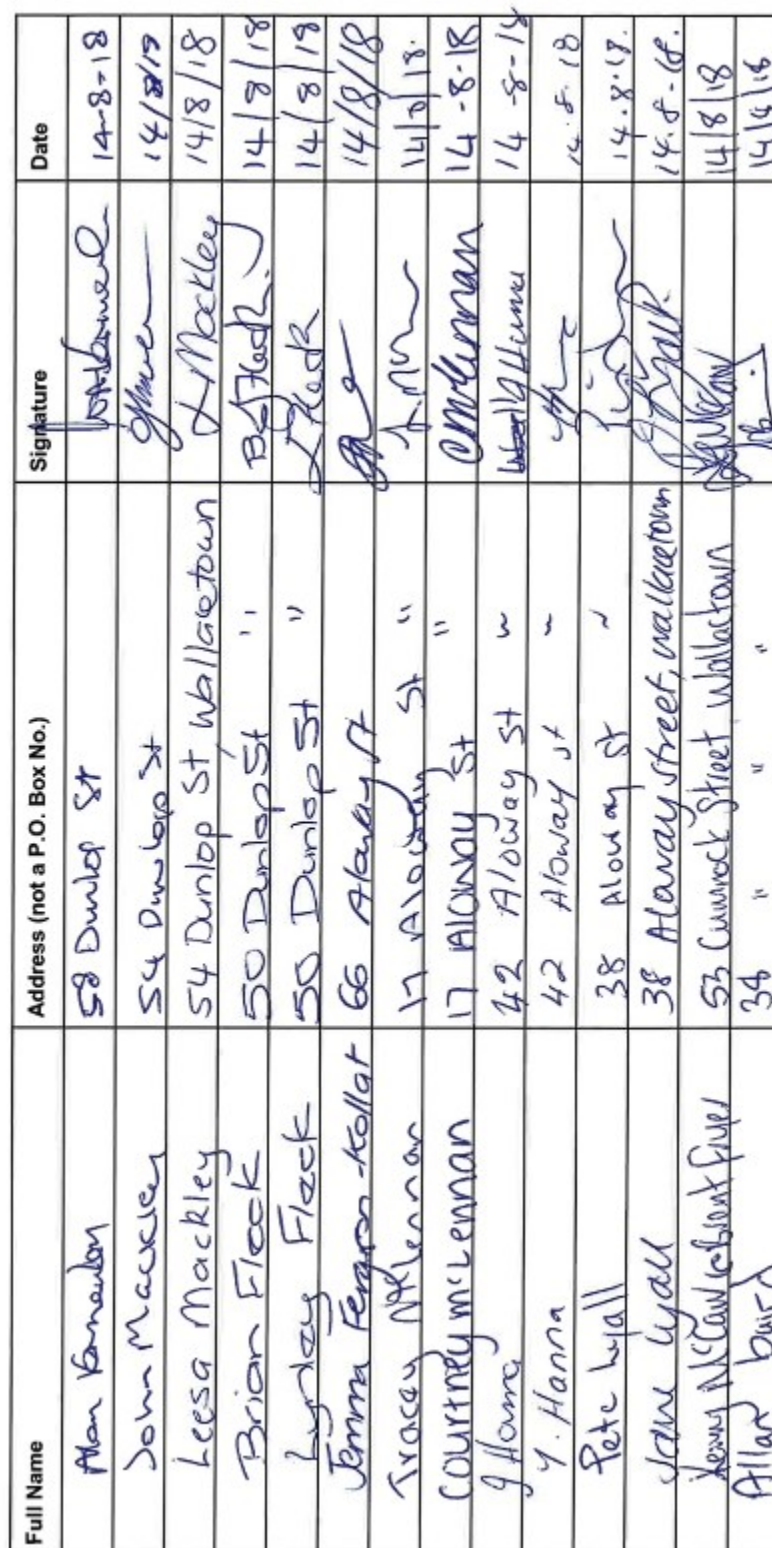 Full Name Address (not a P.O. Box No.) Signature Date
58 Dunlop St 14-8-18
John Mackley 54 Dunlop St 14/8/18
Leesa Mackley 54 Dunlop St Wallacetown L Mackley 14/8/18
Brian Fleck 50 Dunlop St " 14/8/18
Lynley Fleck 50 Dunlop St " L Fleck 14/8/18
Jemma Ferguson-Kollat 66 Aloway St 14/8/18
Tracey McLennan 17 Aloway St " 14/8/18.
Courtney McLennan 17 Aloway St " CMcLennan 14-8-18
J Hanna 42 Aloway St " 14-8-18
Y. Hanna 42 Aloway St " 14.8.18
Pete Lyall 38 Aloway St " 14.8.18.
Jane Lyall 38 Aloway Street, Wallacetown 14.8-18.
McCaw Brent Fryer 53 Cumnock Street Wallactown 14/8/18
Allan Baird 38 " " " 14/8/18